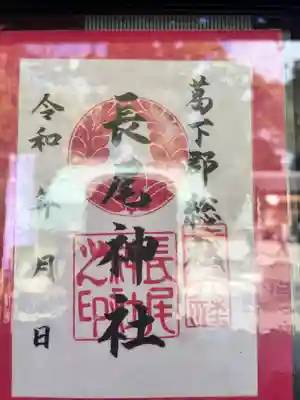 葛下郡総社
長尾神社
長尾神社之印
令和 年 月 日